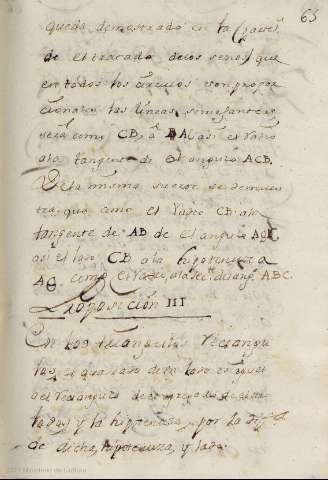 65
queda demostrado en la
de el tratado de los senos) que
en todos los circulos son propor
cionales las lineas semejantes
sera como CB, a BA, asi el radio
a la tangente de el angulo ACB.
De la misma suerte se demues
tra, que como el radio CB a la
tangente de AB de el angulo
asi el lado CB a la hipotenusa
como el radio, a la sec. del ang. ABC.
Proposición III
En los triangulos rectangu
los, el quadrado de un lado es igual
al rectangulo de el agregado de
lado, y la hipotenusa, por la
de dicha hipotenuza, y lado.